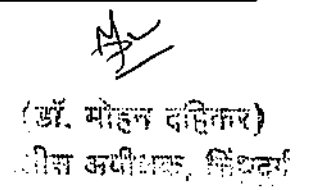 (डॉ. मोहन दहिकर)
अधीक्षक, सिंधुदुर्ग